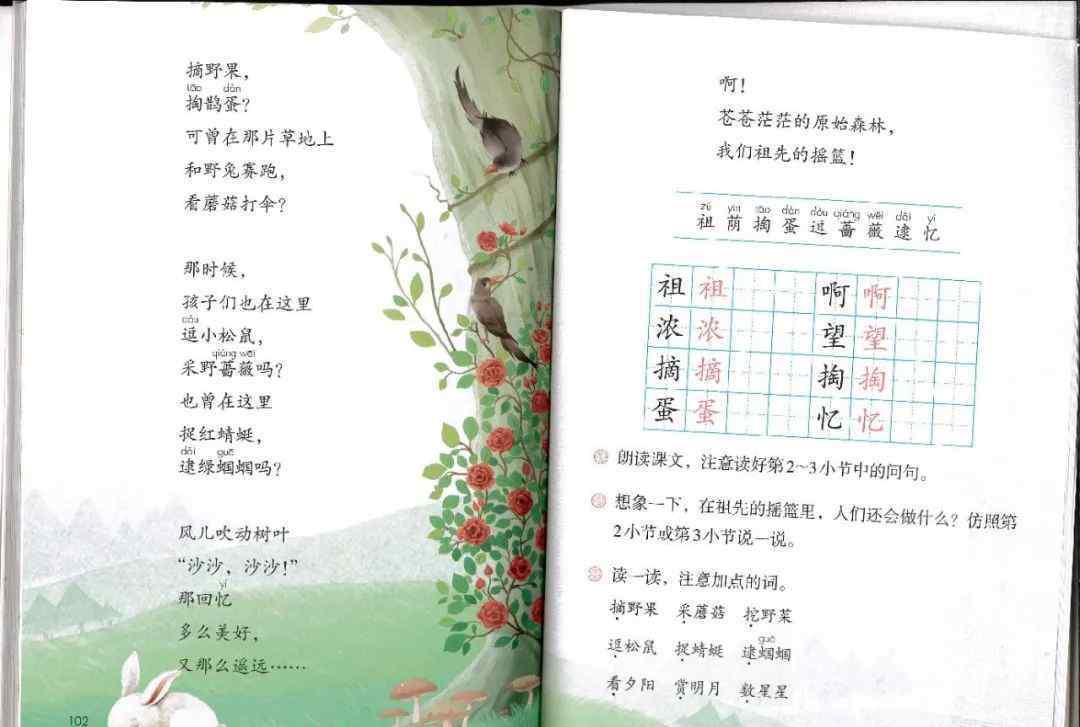 摘野果，
tāo dàn
掏鹊蛋？
可曾在那片草地上
和野兔赛跑，
看蘑菇打伞？
那时候，
孩子们也在这里
dòu
逗小松鼠，
qiáng wēi
采野蔷薇吗？
也曾在这里
捉红蜻蜓，
dǎi guō
逮绿蝈蝈吗？
风儿吹动树叶
“沙沙，沙沙！”
yì
那回忆
多么美好，
又那么遥远……
102
啊！
苍苍茫茫的原始森林，
我们祖先的摇篮！
zǔ yīn tāo dàn dòu qiáng wēi dǎi yì
祖 荫 掏 蛋 逗 蔷 薇 逮 忆
祖 祖 啊 啊
浓 浓 望 望
摘 摘 掏 掏
蛋 蛋 忆 忆
朗读课文，注意读好第2～3小节中的问句。
想象一下，在祖先的摇篮里，人们还会做什么？仿照第
2小节或第3小节说一说。
读一读，注意加点的词。
摘野果 采蘑菇 挖野菜
guō
逗松鼠 捉蜻蜓 逮蝈蝈
看夕阳 赏明月 数星星